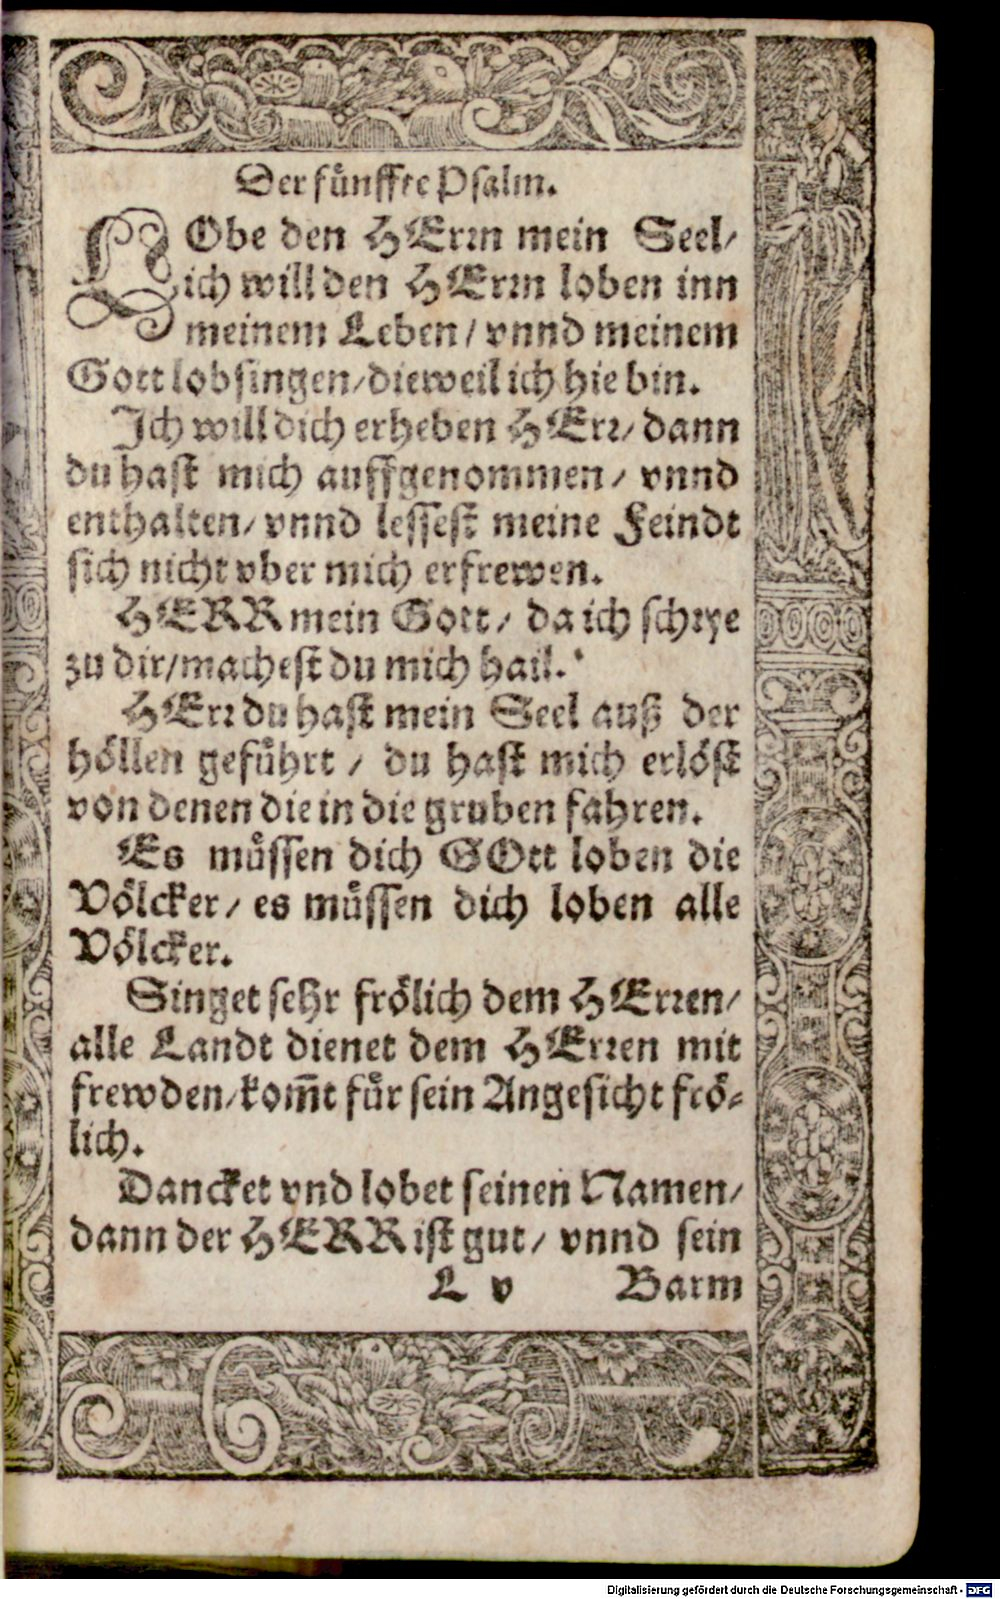 Der fünffte Psalm.
LObe den HErrn mein Seel/
ich will den HErrn loben inn
meinem Leben / vnnd meinem
Gott lobsingen/dieweil ich hie bin.
Ich will dich erheben HErr/ dann
du hast mich auffgenommen / vnnd
enthalten/ vnnd lessest meine Feindt
sich nicht vber mich erfrewen.
HERR mein Gott / da ich schrye
zu dir/machest du mich hail.
HErr du hast mein Seel auß der
höllen geführt / du hast mich erlöst
von denen die in die gruben fahren.
Es müssen dich GOtt loben die
Völcker / es müssen dich loben alle
Völcker.
Singet sehr frölich dem HErren/
alle Landt dienet dem HErren mit
frewden/kom̃t für sein Angesicht frö-
lich.
Dancket vnd lobet seinen Namen/
dann der HERR ist gut / vnnd sein
L v Barm
Digitalisierung gefördert durch die Deutsche Forschungsgemeinschaft - DFG